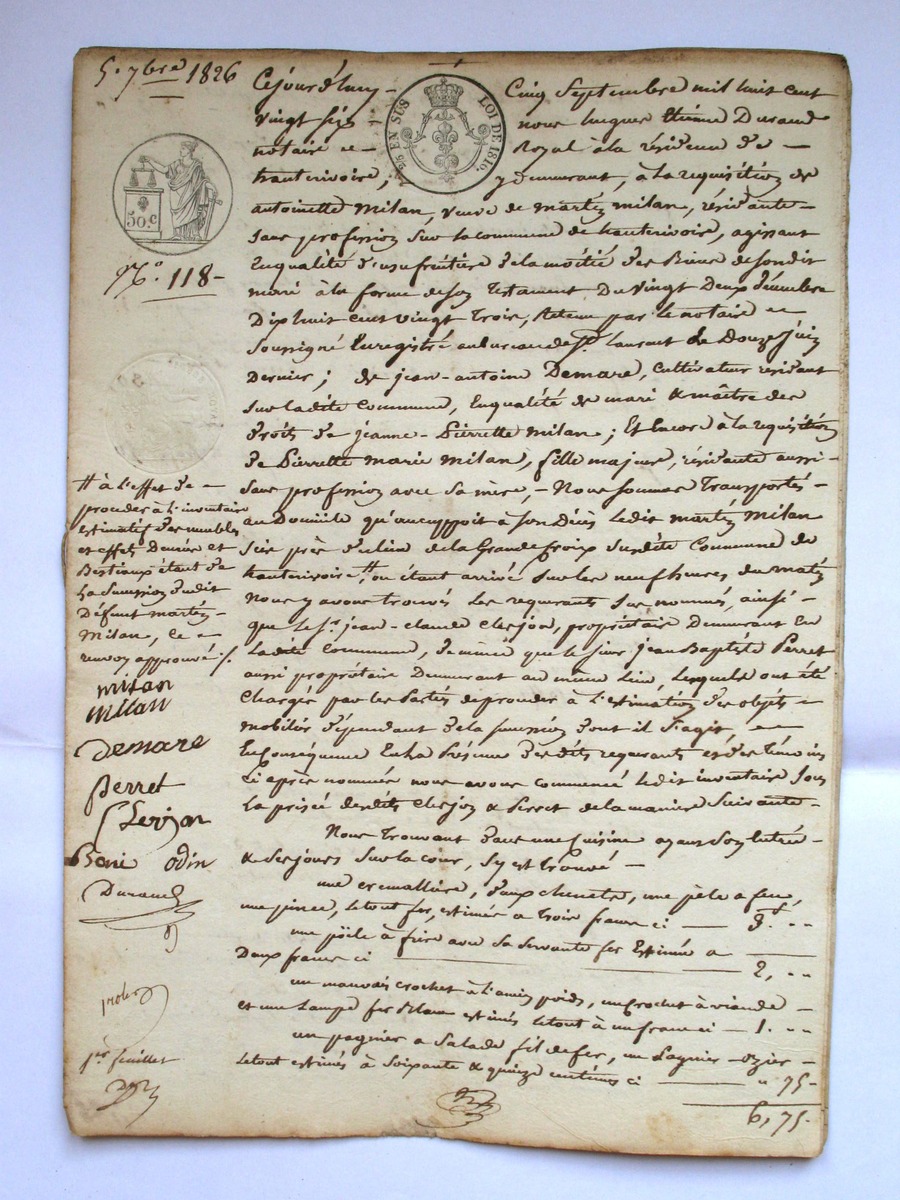 5. 7bre 1826
Cejourd'huy Cinq Septembre mil huit cent
vingt six nous hugues Etienne Durand
notaire Royal à la résidence de
hauterivoire, y demeurant, à la requisition de
antoinette Milan, veuve de martin milan, résidante
sans profession sur la commune de hauterivoire, agissant
En qualité d'usufruitière de la moitié des Biens de son dit
mari à la forme de son Testament Du vingt Deux décembre
Dix huit cent vingt trois, Retenu par le notaire
soussigné Enregistré au bureau de St. Laurent le Douze juin
Dernier; de jean-antoine Demare, Cultivateur résidant
sur ladite Commune, En qualité de mari & maître des
droits de jeanne-Pierrette milan; Et Encore à la requisition
de Pierrette marie milan, fille majeure, résidante aussi
sans profession avec sa mère, - Nous sommes Transportés
au Domicile qu'occuppoit à son Décès ledit martin Milan
sis près du lieu de la Grande Croix susdite Commune de
hauterivoire # où étant arrivé sur les neuf heures du matin
Nous y avons trouvés les requerants sus nommés, ainsi
que le Sr. jean-claude Clerjon, propriétaire Demeurant En
ladite Commune, de même que le sieur jean Baptiste Perret
aussi propriétaire Demeurant au même lieu, lesquels ont été
Chargés par les Parties de proceder à l'estimation des objets
mobiliers dépendant de la succession dont il s'agit,
En Conséquence En la Présence desdits requerants et des témoins
ci après nommés nous avons commencé ledit inventaire sous
la prisée desdits Clerjon & Perret de la manière suivante
Nous trouvant dans une Cuisine ayant son Entrée
& ses jours sur la cour, s'y est trouvé
une cremallière, deux chenets, une pèle a feu,
une pince, le tout fer, estimés a trois francs ci 3f. ..
une pöele à frire avec sa servante fer Estimée a
Deux francs ci 2, ..
un mauvais crochet à l'ancien poids, un Crochet à viande
et une Lampe fer blanc estimés le tout à un franc ci 1. ..
un pagnier a Salade fil de fer, un Pagnier ozier
le tout estimés à Soixante & quinze centimes ci " 75
6, 75
EN SUS LOI DE 1816.
50.c
No. 118
# à l'effet de
proceder à l'inventaire
estimatif des meubles
et effets Denrées et
Bestiaux étant de
la succession dudit
Défunt martin
Milan, le
renvoy approuvé ./.
milan
Milan
Demare
Perret
Clerjon
odin
Durand
1er feuillet